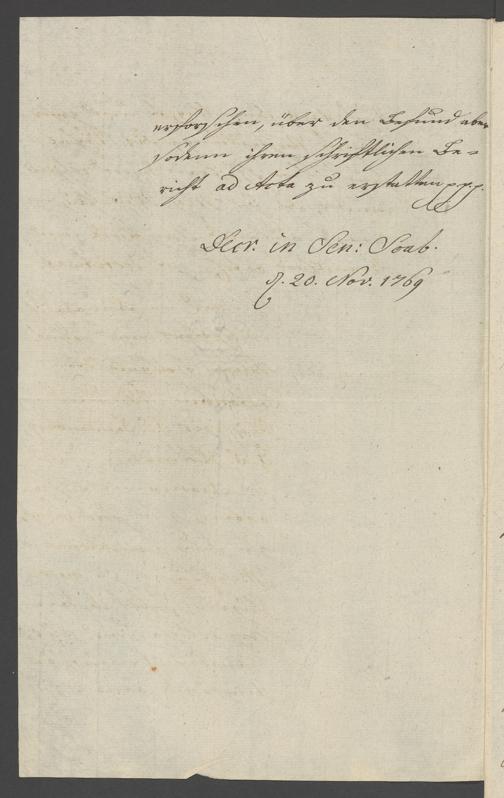 erforschen, über den Befund aber
sodenn ihren schriftlichen Be-
richt ad Acta zu erstatten ppp.
Decr. in Sen: Scab.
d. 20. Nov. 1769